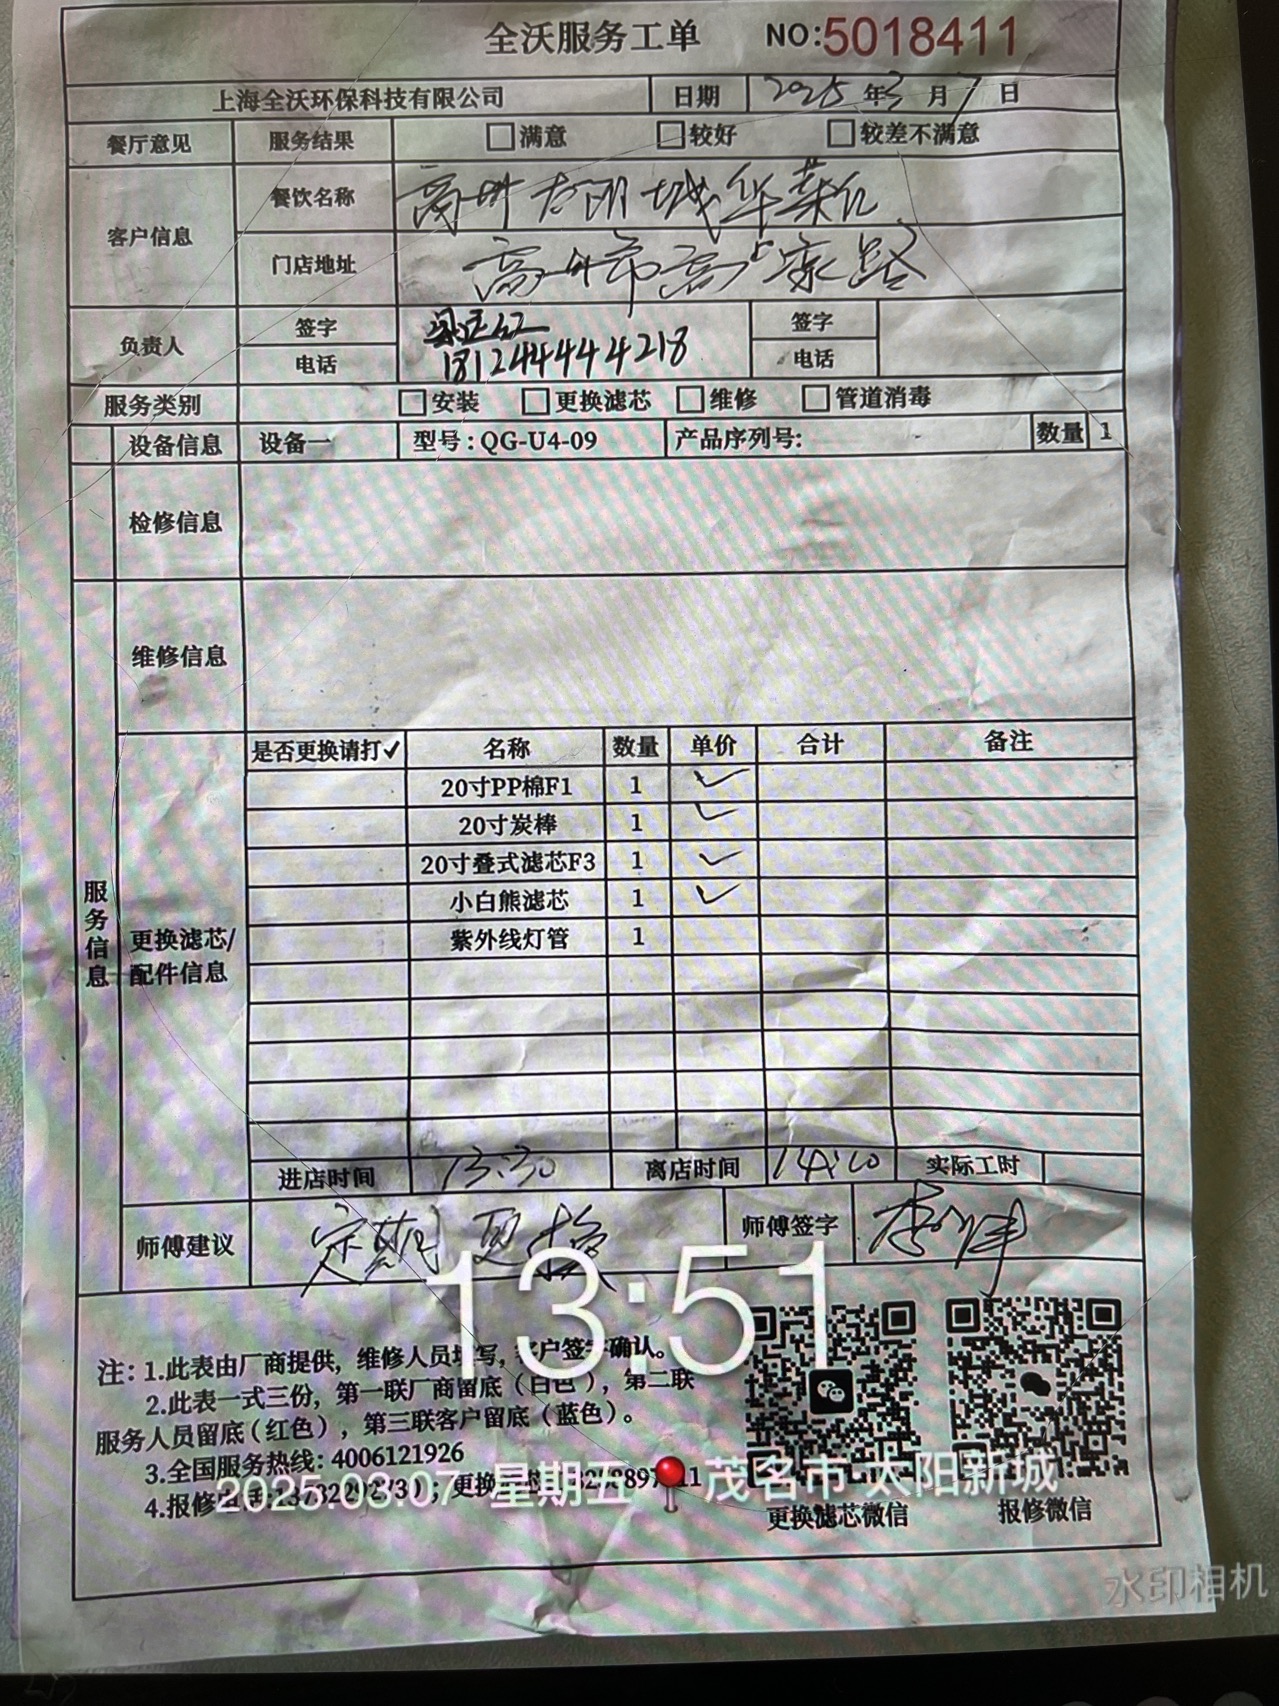 全沃服务工单 NO:5018411
上海全沃环保科技有限公司 日期 2025年3月7日
餐厅意见 服务结果 满意 较好 较差不满意
客户信息 餐饮名称 高州太阳城华莱仕
门店地址 高州市高凉路
负责人 签字 签字
电话 18124444218 电话
服务类别 安装 更换滤芯 维修 管道消毒
设备信息 设备一 型号:QG-U4-09 产品序列号: 数量 1
检修信息
维修信息
服务信息
更换滤芯/
配件信息
是否更换请打✓ 名称 数量 单价 合计 备注
20寸PP棉F1 1 ✓
20寸炭棒 1 ✓
20寸叠式滤芯F3 1 ✓
小白熊滤芯 1 ✓
紫外线灯管 1
进店时间 13:30 离店时间 14:10 实际工时
师傅建议 定期更换 师傅签字
13:51
注:1.此表由厂商提供,维修人员填写,客户签字确认。
2.此表一式三份,第一联厂商留底(白色),第二联
服务人员留底(红色),第三联客户留底(蓝色)。
3.全国服务热线:4006121926
4.报修 更换
2025.03.07 星期五 茂名市·太阳新城
更换滤芯微信 报修微信
水印相机